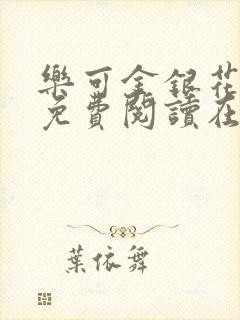 樂可金銀花
免費閱讀在
葉依舞